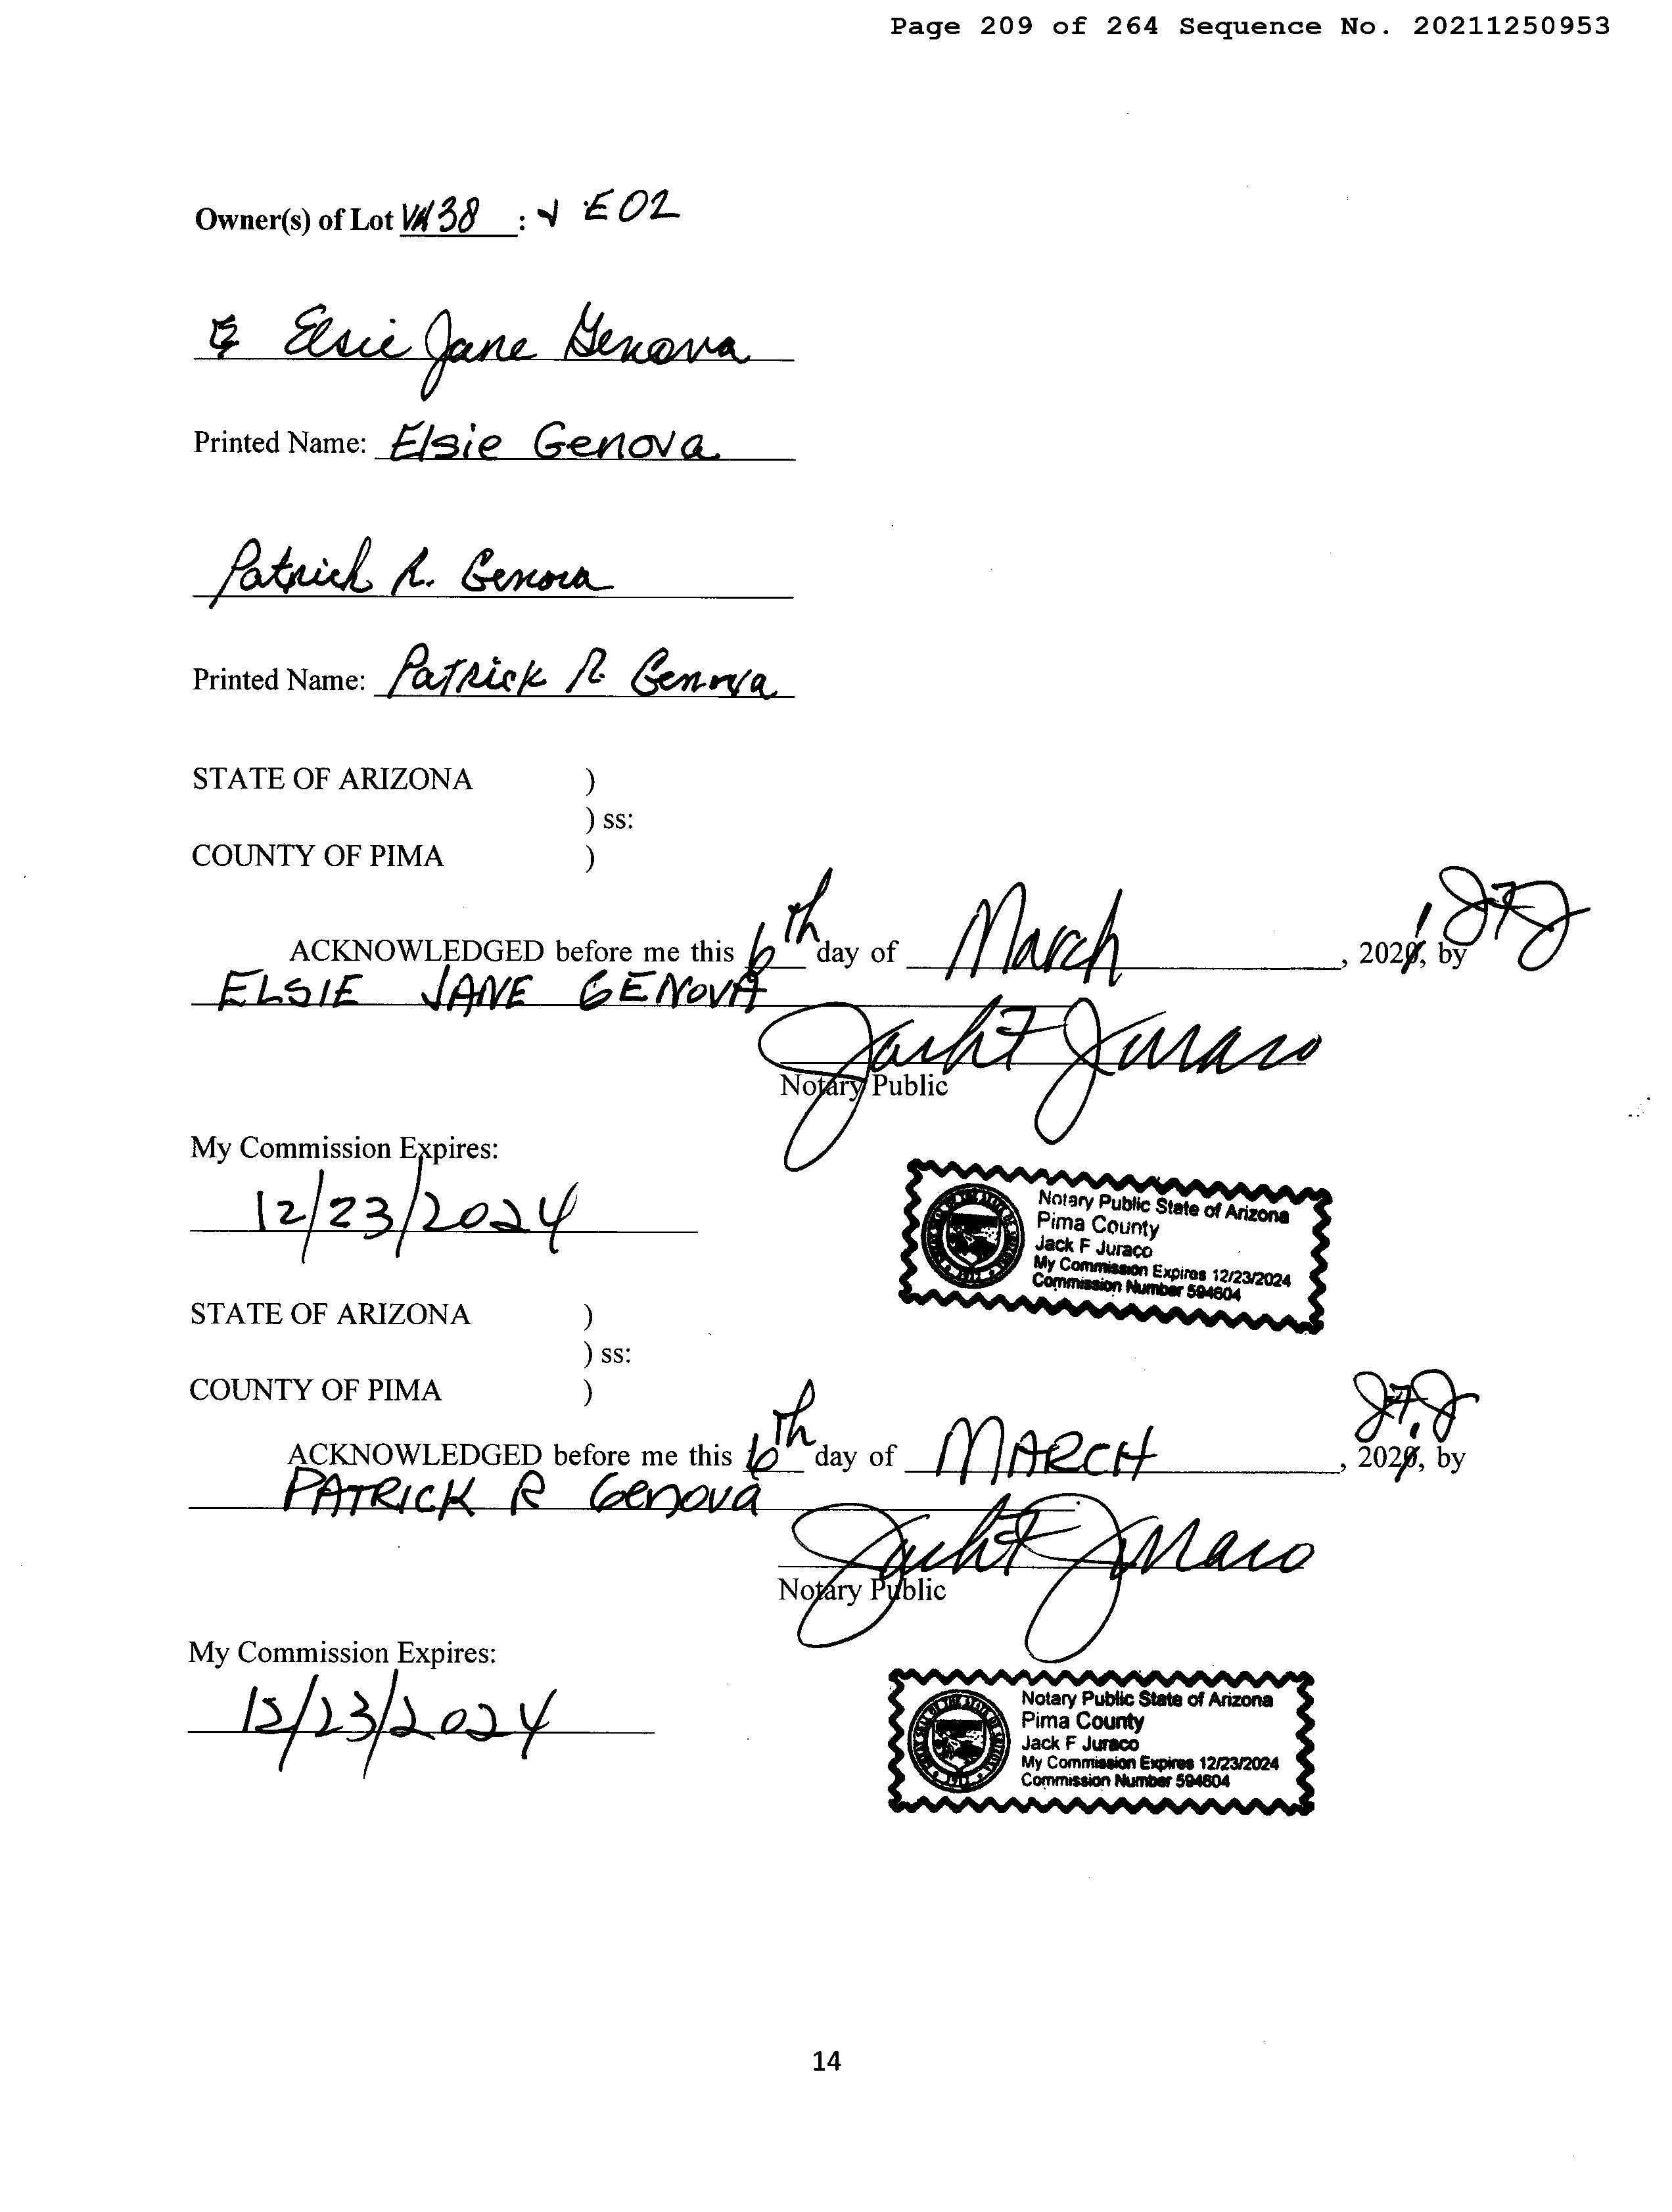 Page 209 of 264 Sequence No. 20211250953
Owner(s) of Lot VA38 : & E02
Elsie Jane Genova
Printed Name: Elsie Genova
Patrick R. Genova
Printed Name: Patrick R. Genova
STATE OF ARIZONA )
) ss:
COUNTY OF PIMA )
ACKNOWLEDGED before me this 6th day of March, 2021, by JFJ
ELSIE JANE GENOVA
Jack F Juraco
Notary Public
My Commission Expires:
12/23/2024
Notary Public State of Arizona
Pima County
Jack F Juraco
My Commission Expires 12/23/2024
Commission Number 594604
STATE OF ARIZONA )
) ss:
COUNTY OF PIMA )
JFJ
ACKNOWLEDGED before me this 6th day of MARCH, 2021, by
PATRICK R Genova
Jack F Juraco
Notary Public
My Commission Expires:
12/23/2024
Notary Public State of Arizona
Pima County
Jack F Juraco
My Commission Expires 12/23/2024
Commission Number 594604
14